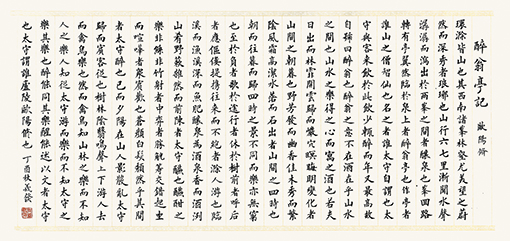 醉翁亭記 歐陽脩
環滁皆山也其西南諸峯林壑尤美望之蔚
然而深秀者琅琊也山行六七里漸聞水聲
潺潺而瀉出於兩峯之間者釀泉也峯回路
轉有亭翼然臨於泉上者醉翁亭也作亭者
誰山之僧智仙也名之者誰太守自謂也太
守與客來飲於此飲少輒醉而年又最高故
自號曰醉翁也醉翁之意不在酒在乎山水
之間也山水之樂得之心而寓之酒也若夫
日出而林霏開雲歸而巖穴暝晦明變化者
山間之朝暮也野芳發而幽香佳木秀而繁
陰風霜高潔水落而石出者山間之四時也
朝而往暮而歸四時之景不同而樂亦無窮
也至於負者歌於途行者休於樹前者呼后
者應傴僂提攜往來而不絕者滁人遊也臨
溪而漁溪深而魚肥釀泉為酒泉香而酒洌
山肴野蔌雜然而前陳者太守醼也醼酣之
樂非絲非竹射者中弈者勝觥籌交錯起坐
而喧嘩者衆賓歡也蒼顏白髮頹然乎其間
者太守醉也已而夕陽在山人影散亂太守
歸而賓客從也樹林陰翳鳴聲上下游人去
而禽鳥樂也然而禽鳥知山林之樂而不知
人之樂人知從太守游而樂而不知太守之
樂其樂也醉能同其樂醒能述以文者太守
也太守謂誰廬陵歐陽脩也 丁酉秋